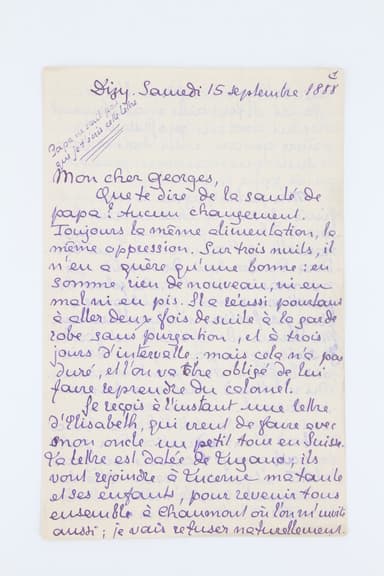 Dizy. Samedi 15 septembre 1888
Papa ne sait pas
que je t'écris cette lettre
Mon cher Georges,
Que te dire de la santé de
papa? Aucun changement.
Toujours la même alimentation, la
même oppression. Sur trois nuits, il
n'en a guère qu'une bonne: en
somme, rien de nouveau, ni en
mal ni en pis. Il a réussi pourtant
à aller deux fois de suite à la garde
robe sans purgation, et à trois
jours d'intervalle, mais cela n'a pas
duré, et l'on va être obligé de lui
faire reprendre du calomel.
Je reçois à l'instant une lettre
d'Elisabeth, qui vient de faire avec
mon oncle un petit tour en Suisse.
Sa lettre est datée de Lugano; ils
vont rejoindre à Lucerne ma tante
et ses enfants, pour revenir tous
ensemble à Chaumont où l'on m'invite
aussi; je vais refuser naturellement.